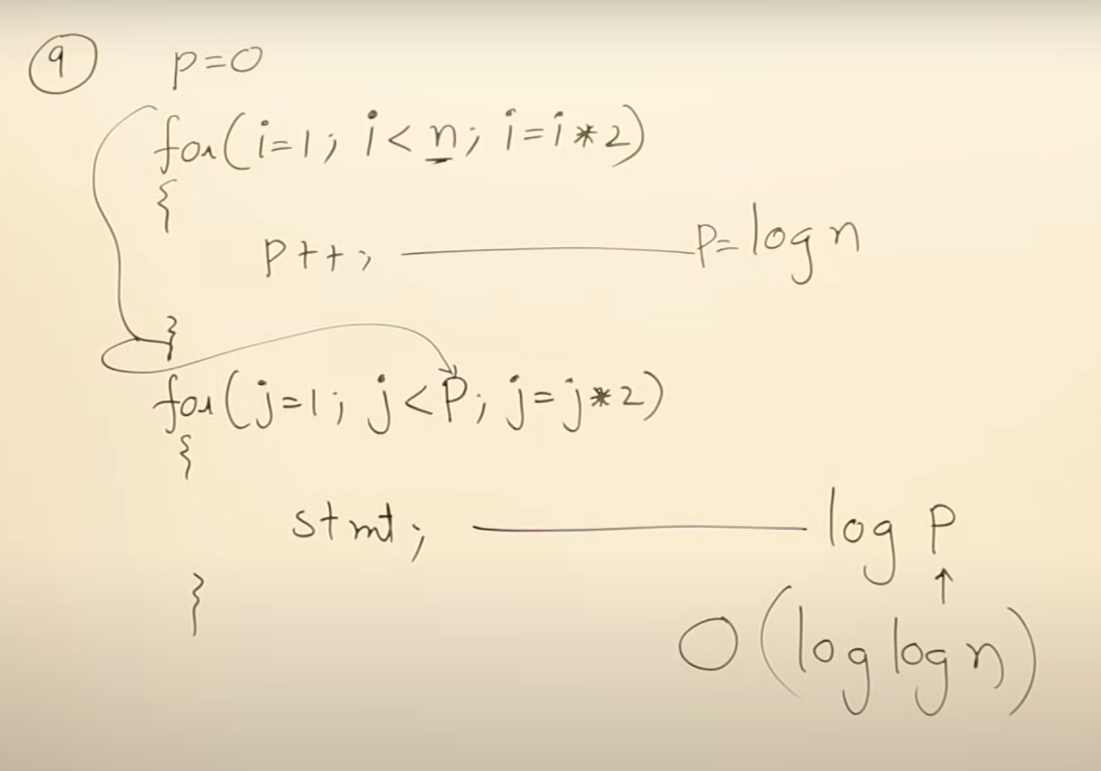 9
p=0
for(i=1; i<n; i=i*2)
{
p++; p=log n
}
for(j=1; j<P; j=j*2)
{
stmt; log P
↑
}
O(log log n)